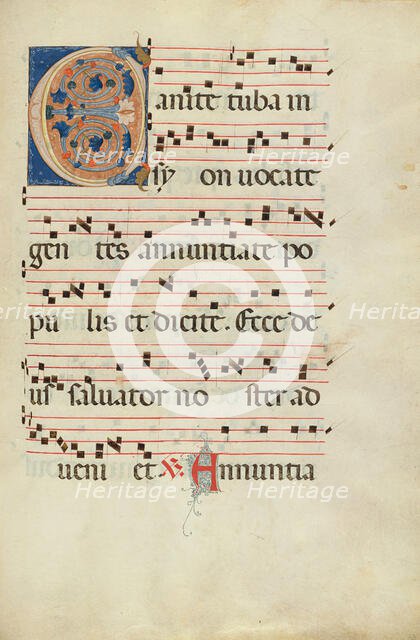 Canite tuba in
sy on uocate
gen tes annuntiate po
pu lis et dicite. Ecce de
us saluator no ster ad
ueni et ℟. Annuntia
Heritage
Heritage
Heritage
Heritage
Heritage
Heritage
Heritage
Heritage